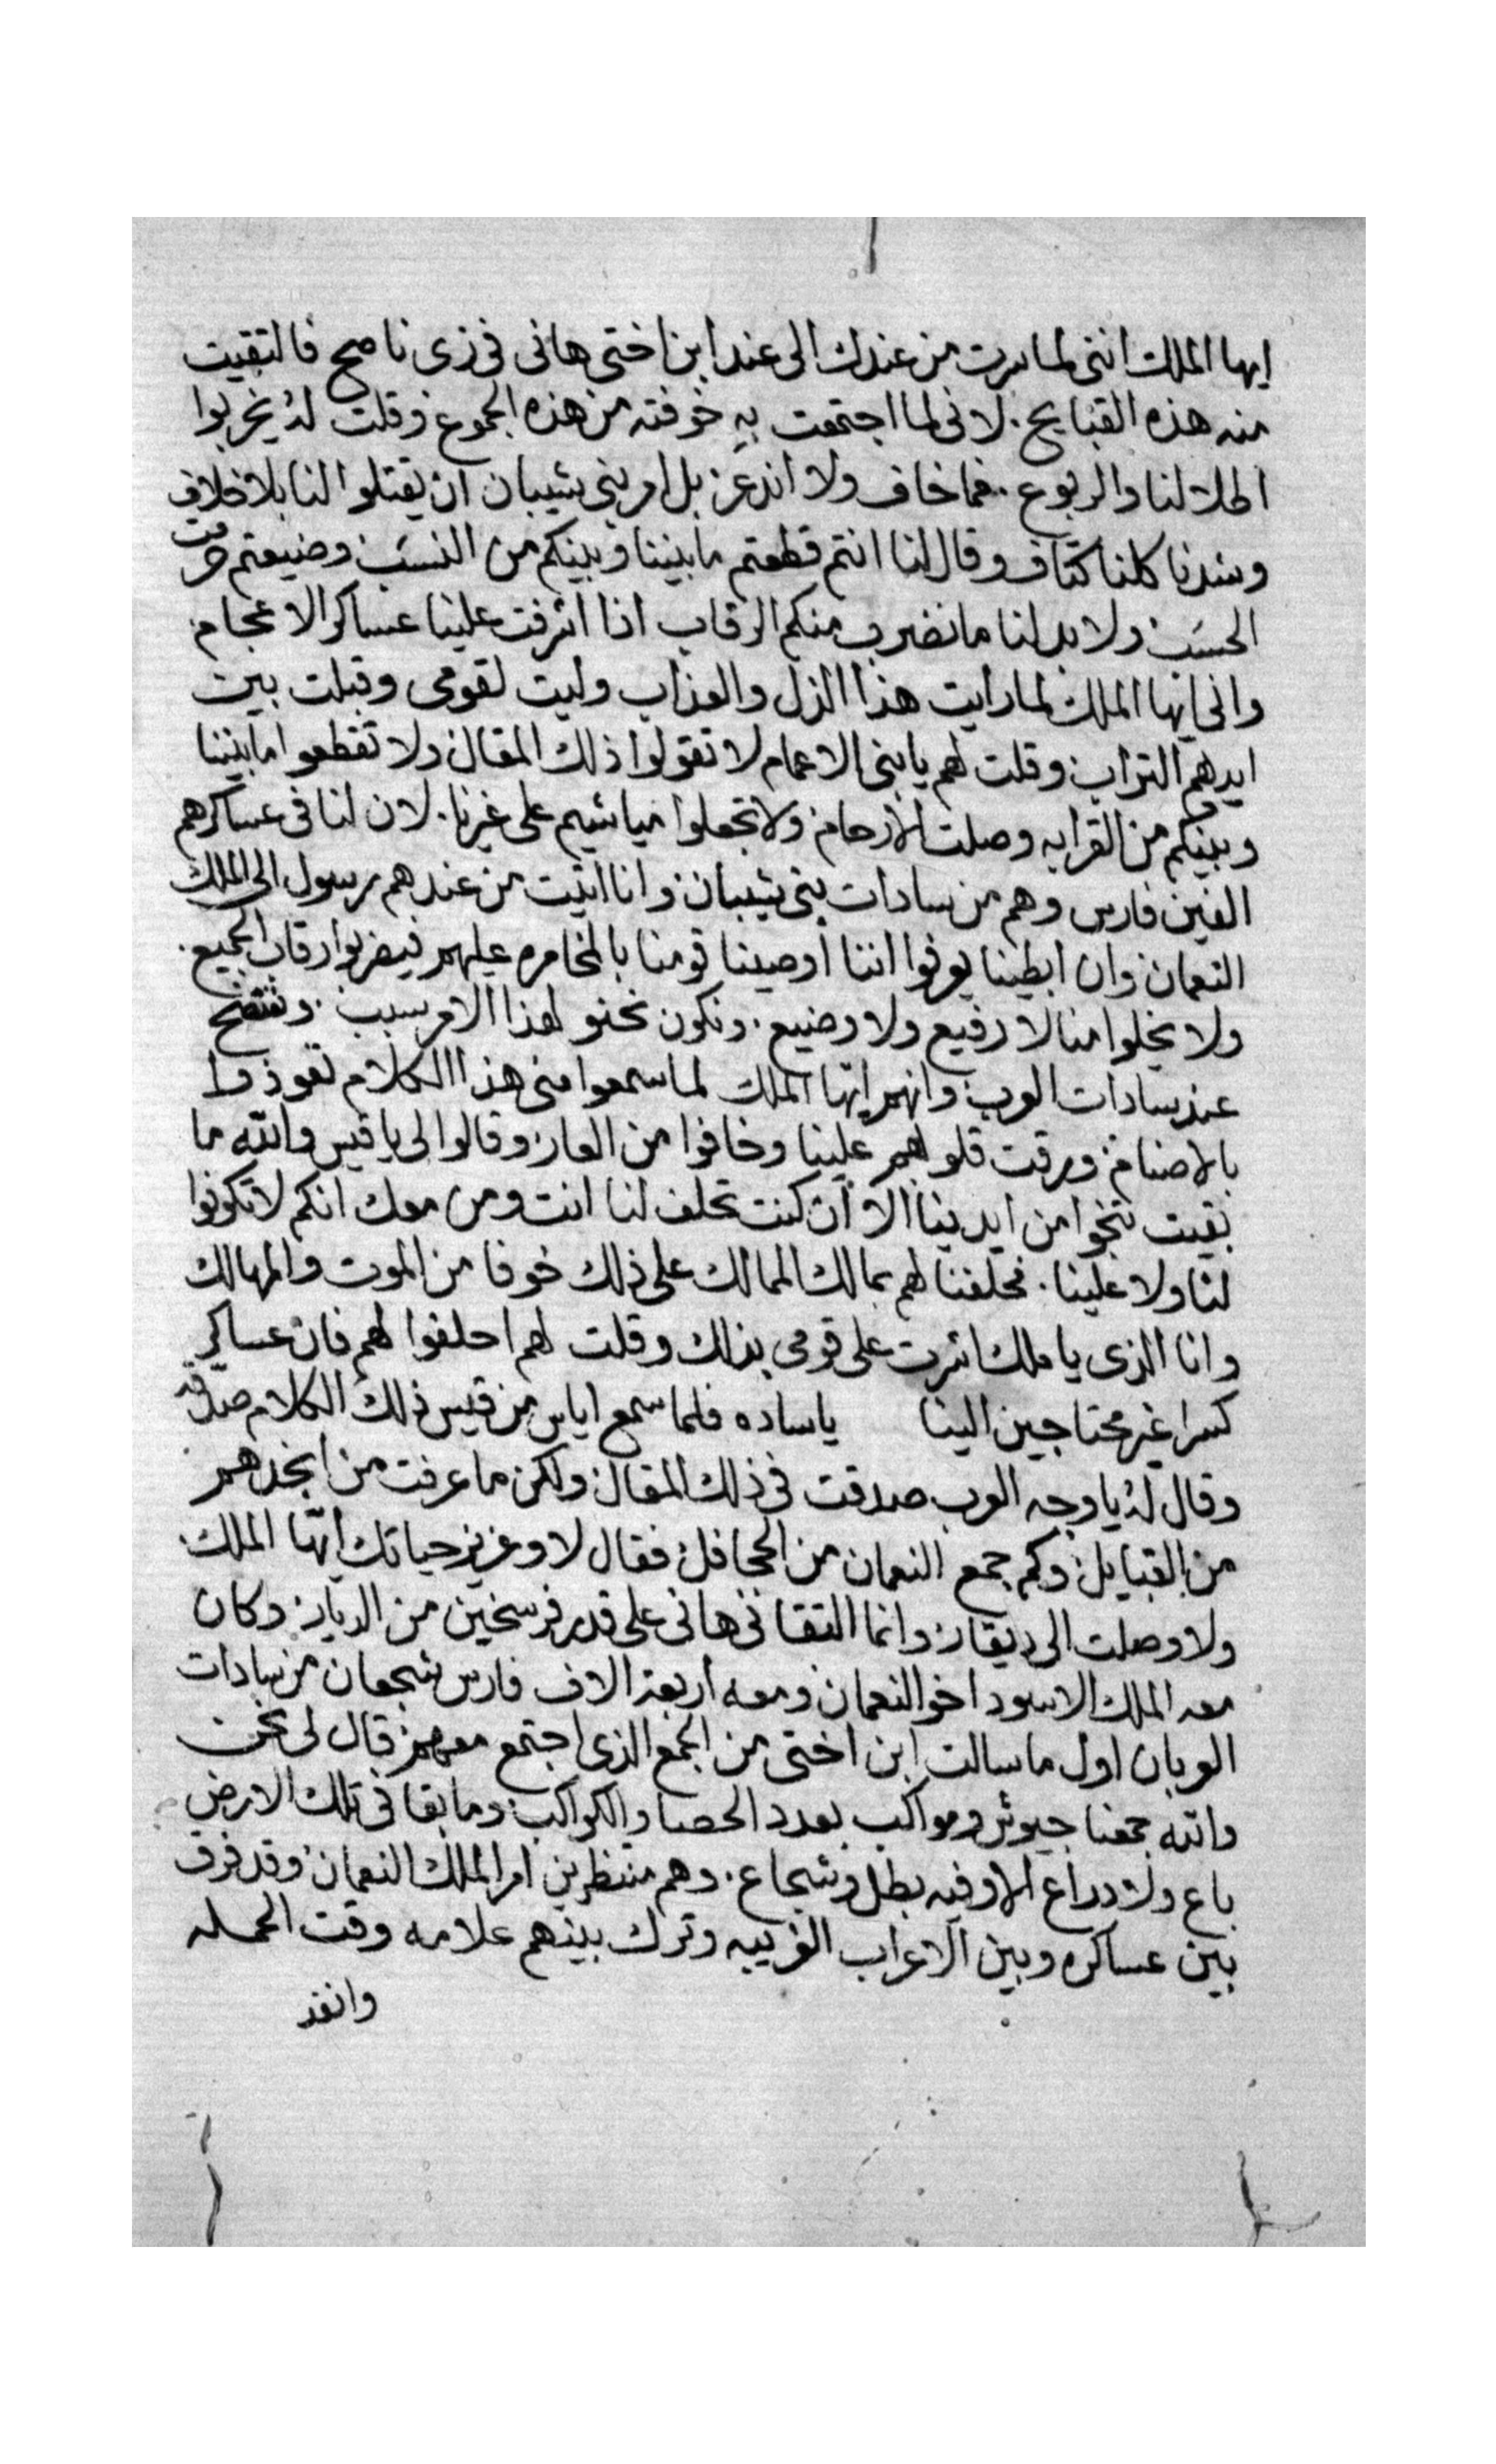 ايها الملك انني لما سرت من عندك الى عند ابن اختي هاني في زي ناصح فالتقيت
منه هذه القبايح. لاني لما اجتمعت به خوفته من هذه الجموع وقلت له يخربوا
اطلالنا والربوع. فما خاف ولا اندعر بل امر بني شيبان ان يقتلوا لنا بلا خلاف
وشدنا كلنا كتاف وقال لنا انتم قطعتم ما بيننا وبينكم من النسب وضيعتم حرمت
الحسب ولا بد لنا ما نضرب منكم الرقاب اذا اشرفت علينا عساكر الاعجام
واني ايها الملك لما رايت هذا الذل والعذاب وليت لقومي وقبلت بين
ايدهم التراب وقلت لهم يا بني الاعمام لا تقولوا ذلك المقال ولا تقطعوا ما بيننا
وبينكم من القرابه وصلت الارحام ولا تجعلوا مياشيم على غيرنا. لان لنا في عساكرهم
الفين فارس وهم من سادات بني شيبان وانا اتيت من عندهم رسول الى الملك
النعمان وان ابطينا يعرفوا اننا اوصينا قومنا بالمخامره عليهم فيضربوا رقاب الجميع.
ولا يخلوا منا لا رفيع ولا وضيع. ونكون نحنو لهذا الامر سبب. ونفتضح
عند سادات العرب وانهم ايها الملك لما سمعوا مني هذا الكلام تعوذوا
بالاصنام ورقت قلوبهم علينا وخافوا من العار وقالوا لي يا قيس والله ما
بقيت تنجوا من ايدينا الا ان كنت تحلف لنا انت ومن معك انكم لا تكونوا
لنا ولا علينا. فحلفنا لهم بمالك الممالك على ذلك خوفا من الموت والمهالك
وانا الذي يا ملك اشرت على قومي بذلك وقلت لهم احلفوا لهم فان عساكر
كسرا غير محتاجين الينا ياساده فلما سمع اياس من قيس ذلك الكلام صدقه
وقال له يا وجه العرب صدقت في ذلك المقال ولكن ما عرفت من انجدهم
من القبايل وكم جمع النعمان من الجحافل فقال لا وعزيز حياتك ايها الملك
ولا وصلت الى ذيقار وانما التقاني هاني على قدر فرسخين من الديار وكان
معه الملك الاسود اخو النعمان ومعه اربعة الاف فارس شجعان من سادات
العربان اول ما سالت ابن اختي من الجمع الذي اجتمع معهم قال لي نحن
والله جمعنا جيوش ومواكب بعدد الحصا والكواكب وما بقا في تلك الارض
باع ولا دراع الا وفيه بطل وشجاع. وهم منتظرين امر الملك النعمان وقد فرق
بين عساكره وبين الاعراب الغريبه وترك بينهم علامه وقت الحمله
وانفذ